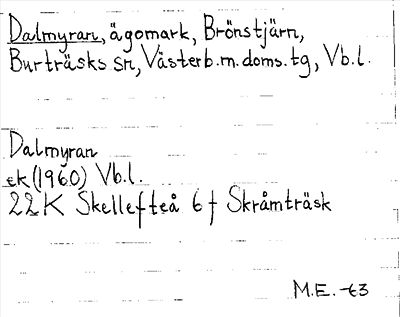 Dalmyran, ägomark, Brönstjärn,
Burträsks sn, Västerb.m.doms.tg, Vb.l.
Dalmyran
ek (1960) Vb.l.
22K Skellefteå 6 f Skråmträsk
M.E. -63